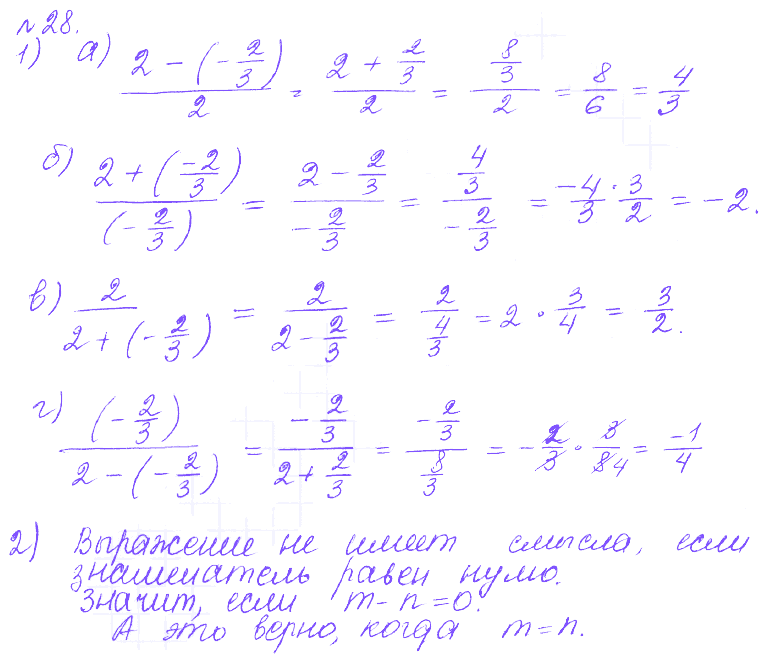 № 28.
1) а) (2 - (-2/3))/2 = (2 + 2/3)/2 = (8/3)/2 = 8/6 = 4/3
б) (2 + (-2/3))/(-2/3) = (2 - 2/3)/(-2/3) = (4/3)/(-2/3) = -4/3 · 3/2 = -2.
в) 2/(2 + (-2/3)) = 2/(2 - 2/3) = 2/(4/3) = 2 · 3/4 = 3/2.
г) (-2/3)/(2 - (-2/3)) = (-2/3)/(2 + 2/3) = (-2/3)/(8/3) = -2/3 · 3/8 4 = -1/4
2) Выражение не имеет смысла, если
знаменатель равен нулю.
Значит, если m - n = 0.
А это верно, когда m = n.